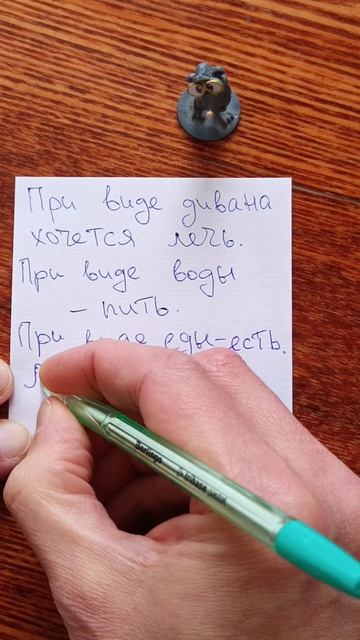 При виде дивана
хочется лечь.
При виде воды
– пить.
При виде еды-есть.
Berlingo